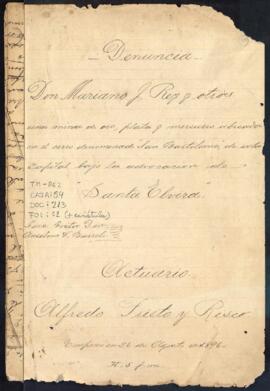 Denuncia
Don Mariano J. Rey y otros
una mina de oro, plata y mercurio ubicada
en el cerro denominado San Bartolomé, de esta
Capital bajo la advocación de
"Santa Elvira"
TM-
CAJA: 54
DOC: 213
FOL: 12 (+ carátula)
Actuario
Alfredo y Risco
26 de Agosto de 1896